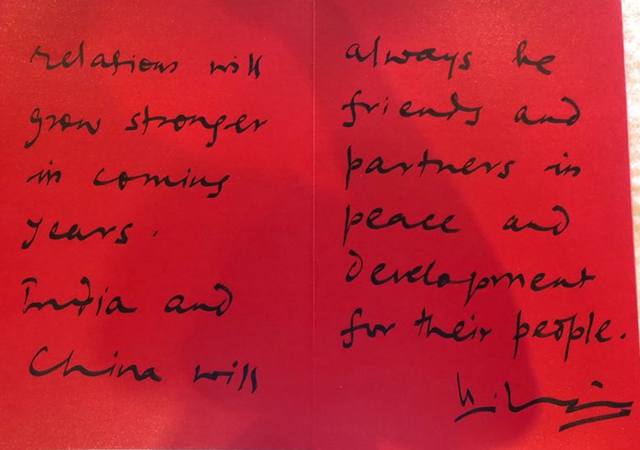 relations will
grow stronger
in coming
years.
India and
China will
always be
friends and
partners in
peace and
development
for their people.